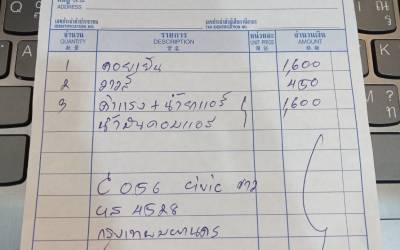 ที่อยู่
ADDRESS
เลขประจำตัวประชาชน เลขประจำตัวผู้เสียภาษีอากร
IDENTIFICATION NO. TAX IDENTIFICATION NO.
จำนวน รายการ หน่วยละ จำนวนเงิน
QUANTITY DESCRIPTION UNIT PRICE AMOUNT
1 คอยเย็น 1,600
2 วาวล์ 450
3 ค่าแรง + น้ำยาแอร์ 1,600
น้ำมันคอมแอร์
C 056 civic ขาว
4528
กรุงเทพมหานคร